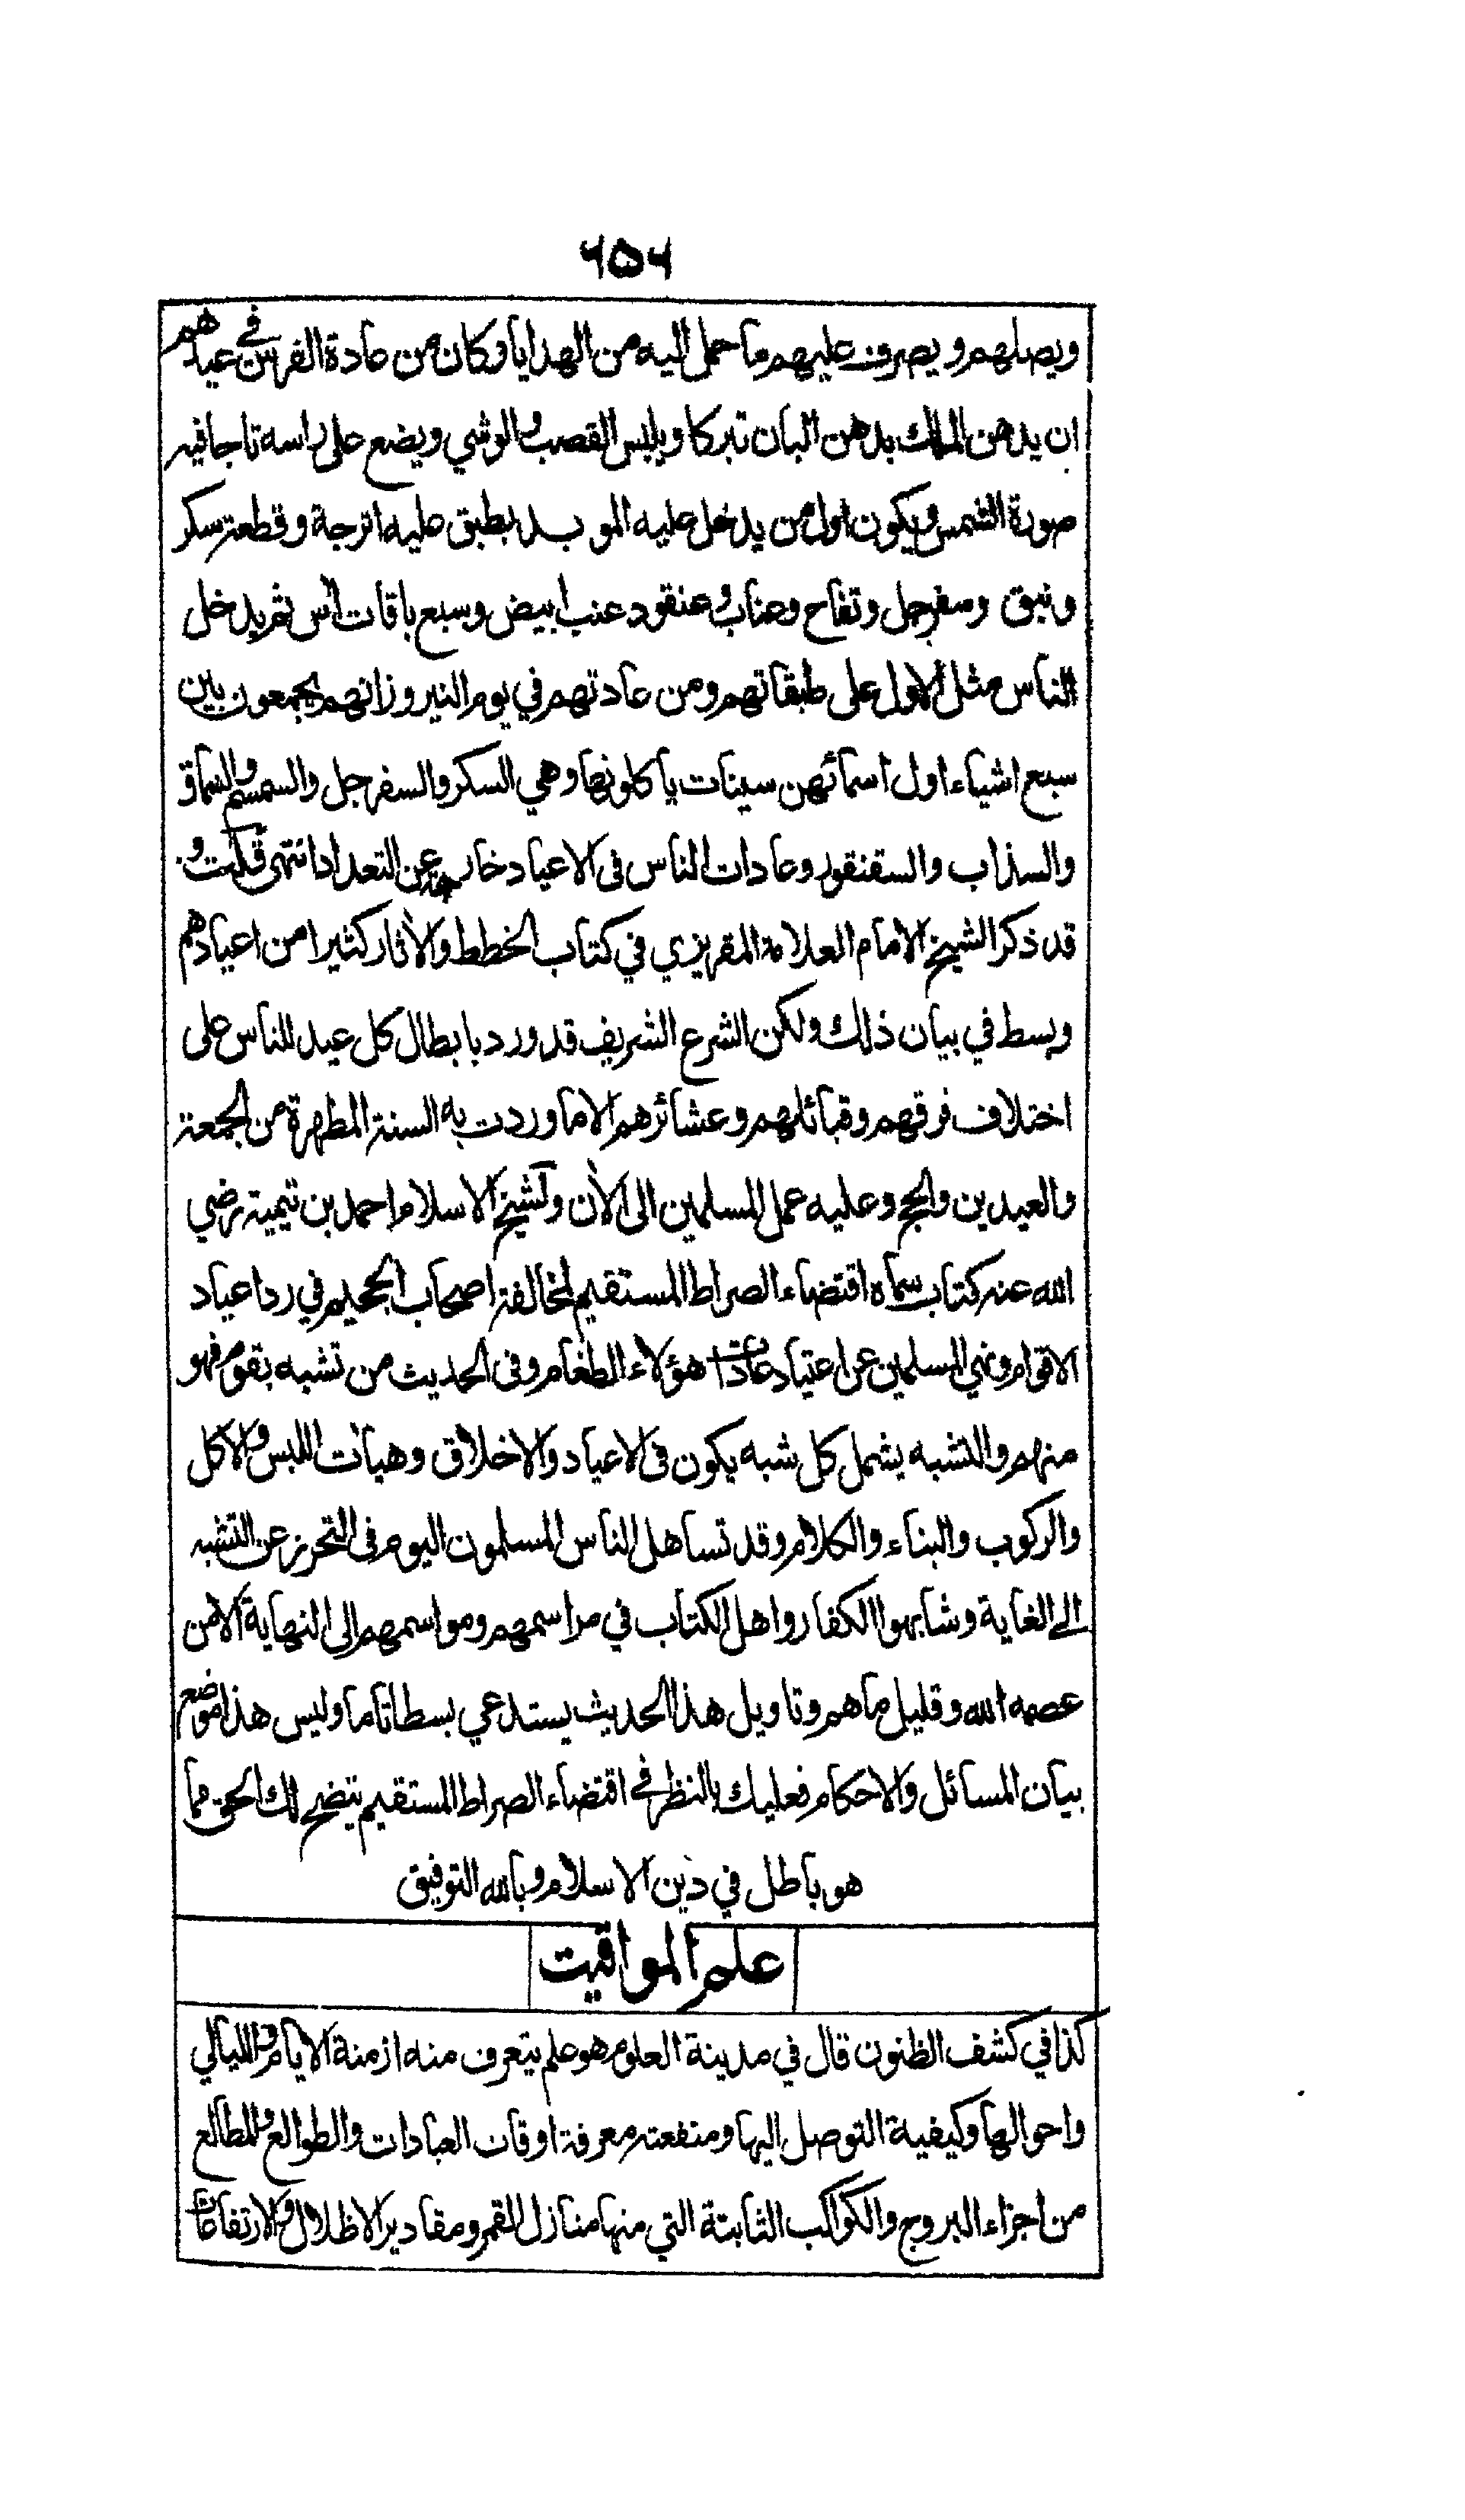 ٦٥٦
ويصلهم ويصرف عليهم ما حمل اليه من الهدايا وكان من عادة الفرس في عيدهم
ان يدهن الملك بدهن البان تبركا ويلبس القصب والوشي ويضع على راسه تاجا فيه
صورة الشمس ويكون اول من يدخل عليه الموبد بطبق عليه اترجة وقطعة سكر
ونبق وسفرجل وتفاح وعناب وعنقود عنب ابيض وسبع باقات اس ثم يدخل
الناس مثل الاول على طبقاتهم ومن عادتهم في يوم النيروز انهم يجمعون بين
سبع اشياء اول اسمائهن سينات ياكلونها وهي السكر والسفرجل والسمسم والسماق
والسذاب والسقنقور وعادات الناس في الاعياد خارجة عن التعداد انتهى قلت و
قد ذكر الشيخ الامام العلامة المقريزي في كتاب الخطط والأثار كثيرا من اعيادهم
وبسط في بيان ذلك ولكن الشرع الشريف قد ورد بابطال كل عيد للناس على
اختلاف فرقهم وقبائلهم وعشائرهم الا ما وردت به السنة المطهرة من الجمعة
والعيدين والحج وعليه عمل المسلمين الى الأن ولشيخ الاسلام احمد بن تيمية رضي
الله عنه كتاب سماه اقتضاء الصراط المستقيم لمخالفة اصحاب الجحيم في رد اعياد
الاقوام ونهي المسلمين عن اعتياد عادات هؤلاء الطغام وفي الحديث من تشبه بقوم فهو
منهم والتشبه يشمل كل شبه يكون في الاعياد والاخلاق وهيأت اللبس والاكل
والركوب والبناء والكلام وقد تساهل الناس المسلمون اليوم في التحرز عن التشبه
الى الغاية وشابهوا الكفار واهل الكتاب في مراسمهم ومواسمهم الى النهاية الا من
عصمه الله وقليل ما هم وتاويل هذا الحديث يستدعي بسطا تاما وليس هذا موضع
بيان المسائل والاحكام فعليك بالنظر في اقتضاء الصراط المستقيم يتضح لك الحق مما
هو باطل في دين الاسلام وبالله التوفيق
علم المواقيت
كذا في كشف الظنون قال في مدينة العلوم هو علم يتعرف منه ازمنة الايام والليالي
واحوالها وكيفية التوصل اليها ومنفعته معرفة اوقات العبادات والطوالع والمطالع
من اجزاء البروج والكواكب الثابتة التي منها منازل القمر ومقادير الاظلال والارتفاعات